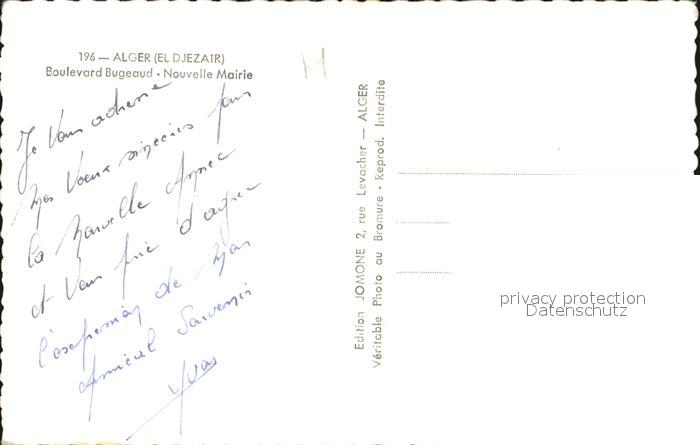 196 — ALGER (EL DJEZAIR)
Boulevard Bugeaud - Nouvelle Mairie
Je Vous adresse
mes Voeux sincères pour
la Nouvelle Année
et Vous prie d'agréer
l'expression de mon
Amical Souvenir
Yvon
Edition JOMONE 2, rue Levacher — ALGER
Véritable Photo au Bromure - Reprod. Interdite
privacy protection
Datenschutz